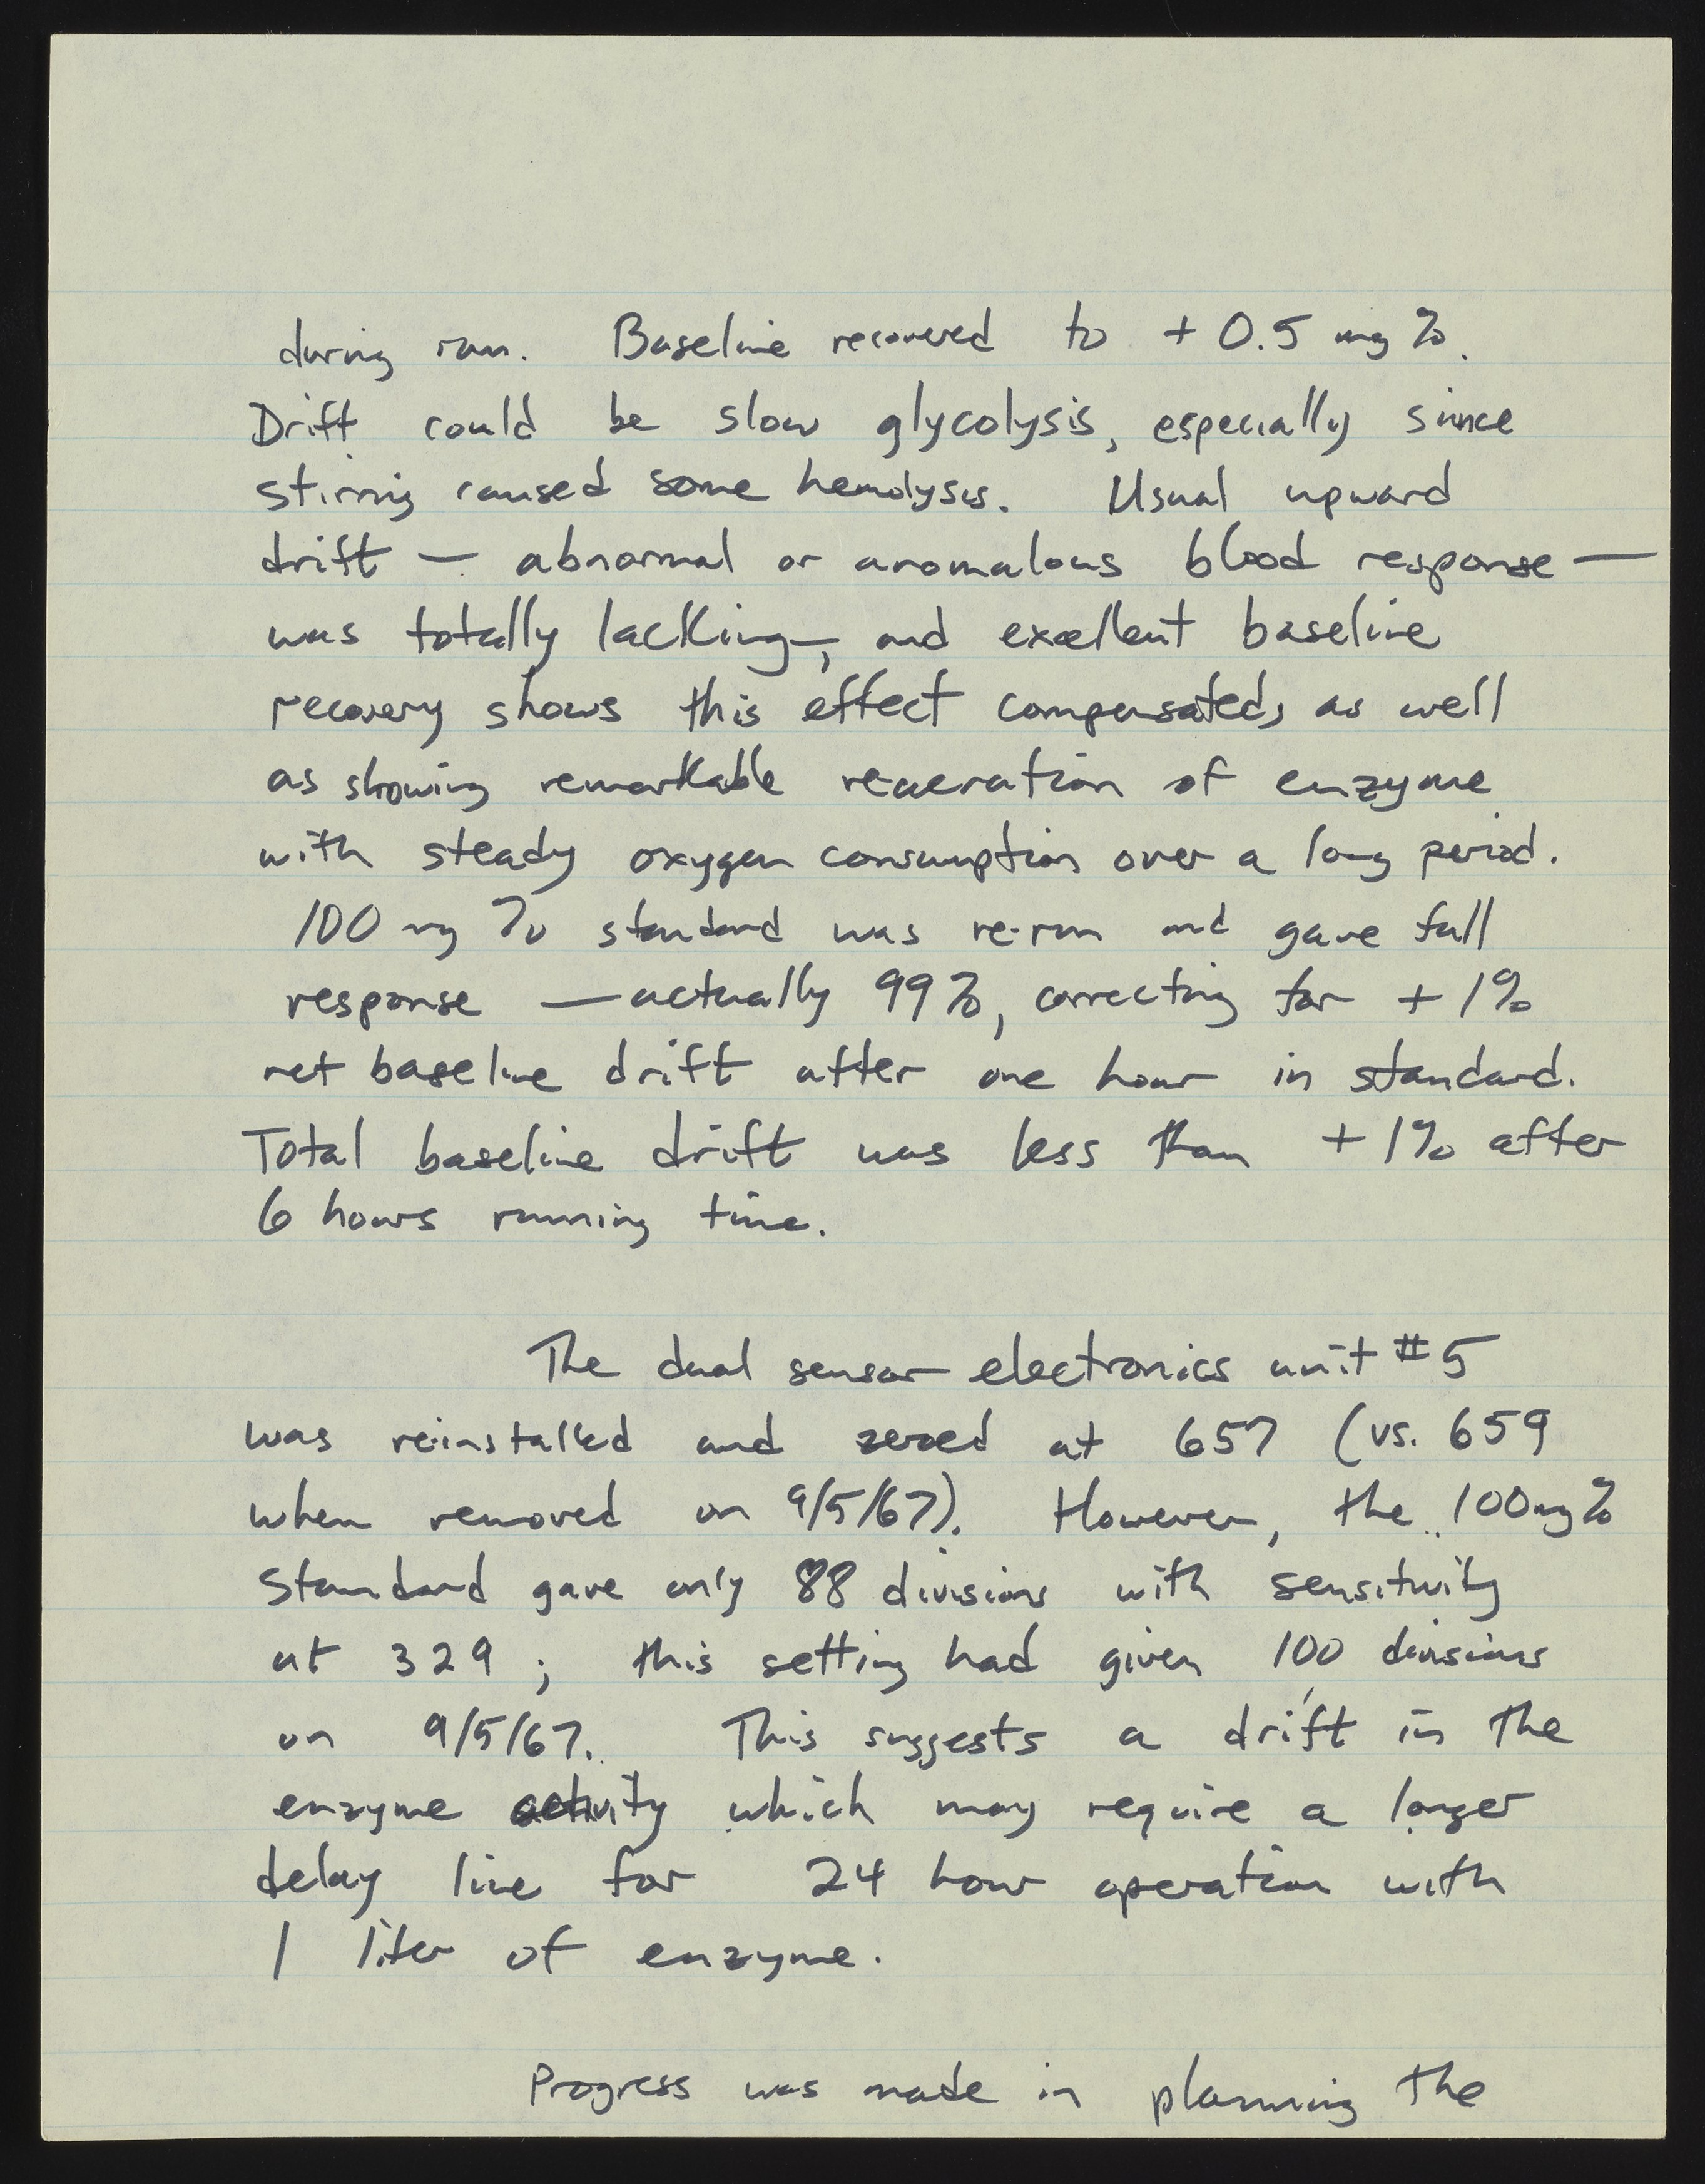 during run. Baseline recovered to + 0.5 mg %.
Drift could be slow glycolysis, especially since
stirring caused some hemolysis. Usual upward
drift — abnormal or anomalous blood response —
was totally lacking, and excellent baseline
recovery shows this effect compensated, as well
as showing remarkable reaeration of enzyme
with steady oxygen consumption over a long period.
100 mg % standard was re-run and gave full
response — actually 99%, correcting for + 1%
net baseline drift after one hour in standard.
Total baseline drift was less than + 1% after
6 hours running time.
The dual sensor electronics unit #5
was reinstalled and zeroed at 657 (vs. 659
when removed on 9/5/67). However, the 100 mg %
standard gave only 88 divisions with sensitivity
at 329 ; this setting had given 100 divisions
on 9/5/67. This suggests a drift in the
enzyme activity which may require a longer
delay line for 24 hour operation with
1 liter of enzyme.
Progress was made in planning the